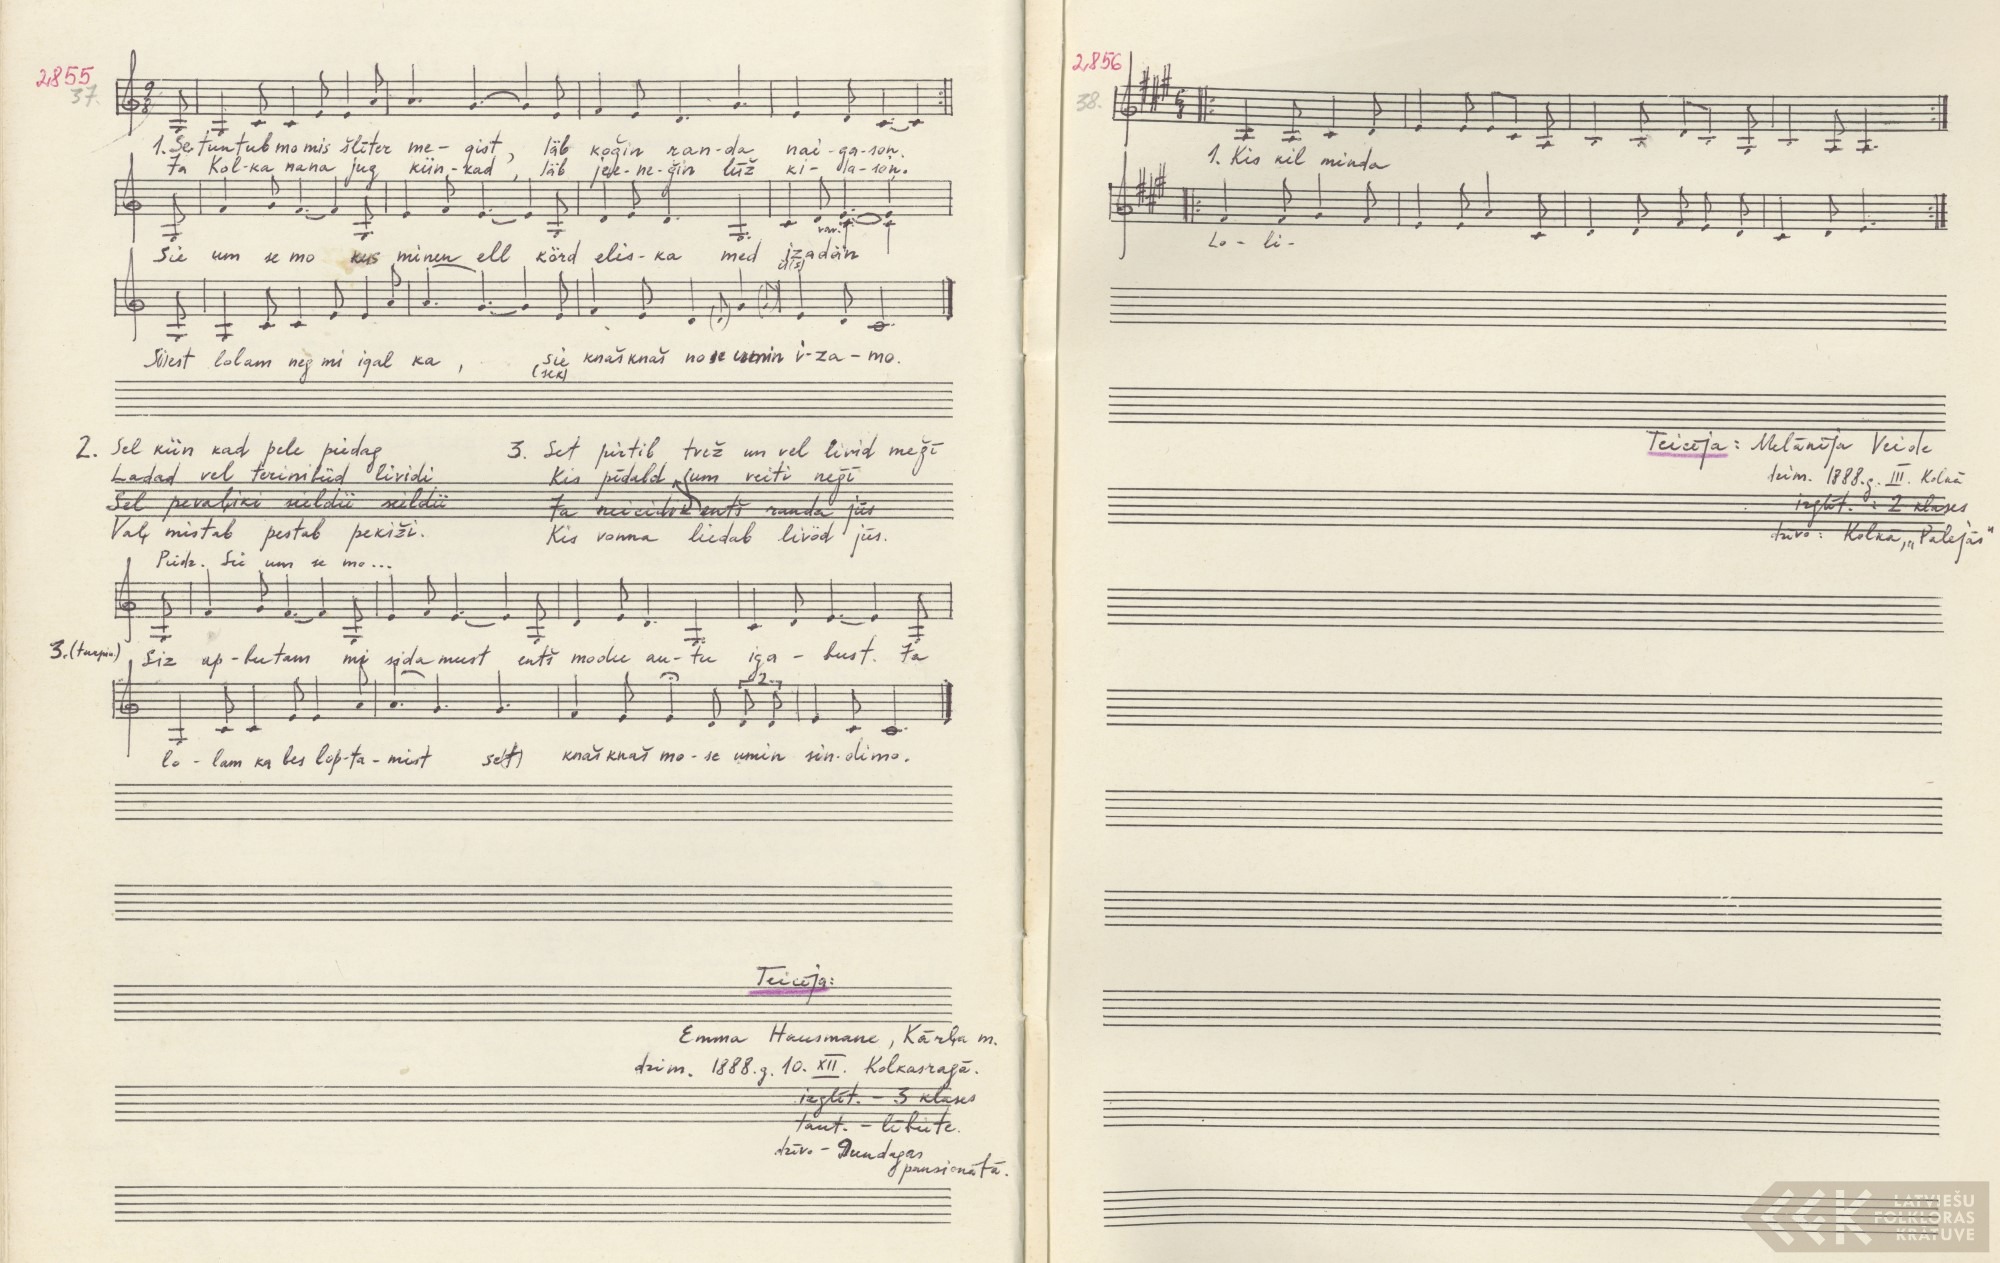 2,855
37.
1. Se tuntub mo mis šliter me-gist, läb kožin ran-da nai-ga-son.
Ja Kol-ka nana jug kün-kad, läb jele-ne-žin lūž ki-la-son.
Sie um se mo kus minen ell körd elis-ka med izadän
var.
Siest lolam neg mi igal ka, sie knaš knaš no se umin i-za-mo.
(sek)
2. Sel kün kad pele piedag
Ladad vel
lividi
Sel
Valţ mistab pestab pekiži.
Piedz. Sie um se mo...
3. Set pirtib trež un vel livid mežī
Kis pīdald sum veiti nežī
Ja
entš randa jūs
Kis vonna liedab livöd jūs.
3. (turpin.) Siz ap-butam mi sida must entš modu au-tu iga-bust. Ja
2
lo-lam ka bes lop-ta-mist se(t) knaš knaš mo-se umin sin-dimo.
Teicēja:
Emma Hausmane, Kārļa m.
dzim. 1888.g. 10. XII. Kolkasragā.
izglīt. – 3 klases
taut. – lībiete.
dzīvo – Dundagas
pansionātā.
2,856
38.
1. Kis kil minda
Lo-li-
Teicēja: Melānija Veide
dzim. 1888.g. III. Kolkā
izglīt. : 2 klases
dzīvo: Kolkā, „Palejās"
LATVIEŠU
FOLKLORAS
KRĀTUVE